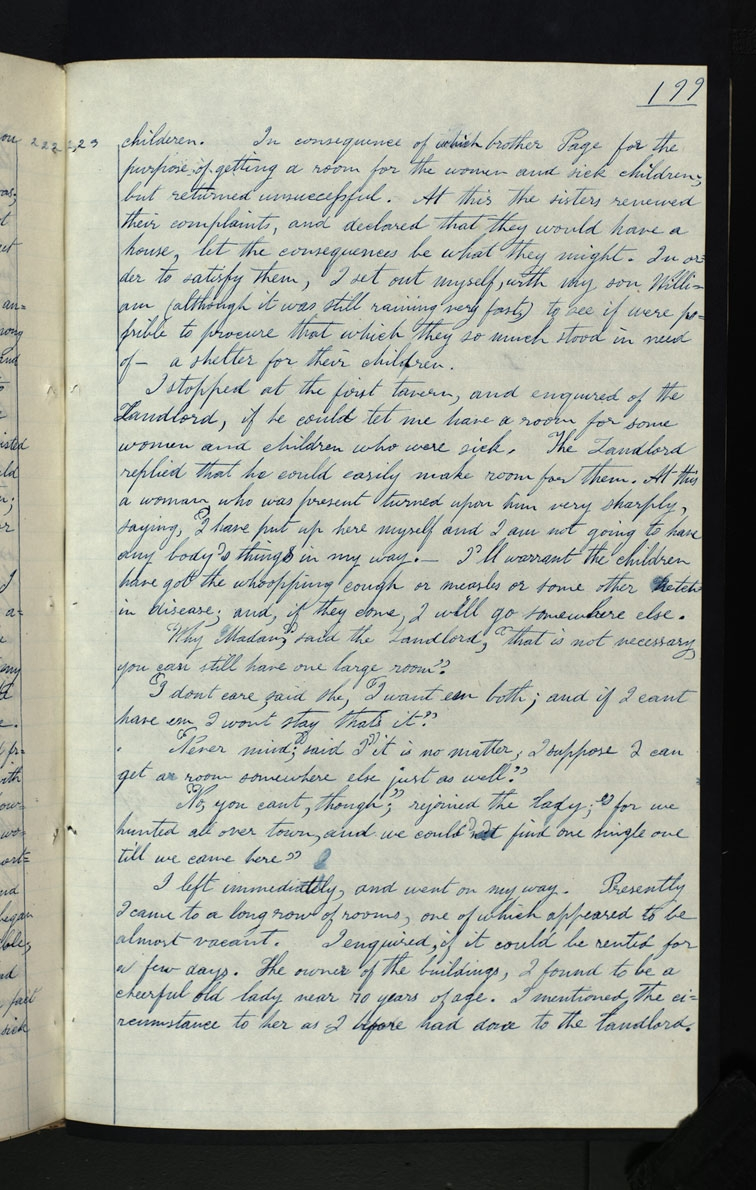 199
222,23
children. In consequence of which brother Page for the
purpose of getting a room for the women and sick children;
but returned unsuccessful. At this the sisters renewed
their complaints, and declared that they would have a
house, let the consequences be what they might. In or=
der to satisfy them, I set out myself, with my son Willi=
am (although it was still raining very fast,) to see if were po=
ssible to procure that which they so much stood in need
of— a shelter for their children.
I stopped at the first tavern, and enquired of the
Landlord, if he could let me have a room for some
women and children who were sick. The Landlord
replied that he could easily make room for them. At this
a woman who was present turned upon him very sharply,
saying, "I have put up here myself and I am not going to have
any body's things in my way.— I'll warrant the children
have got the whoopping cough or measles or some other ketch
in disease; and, if they come, I will go somewhere else.
Why Madam," said the Landlord, "that is not necessary
you can still have one large room".
"I dont care, said she, "I want em both; and if I cant
have em I wont stay thats it"
"Never mind," said I "it is no matter, I suppose I can
get a room somewhere else just as well."
"No, you cant, though", rejoined the lady; "for we
hunted all over town, and we could not find one single one
till we came here"
I left immediatly, and went on my way. Presently
I came to a long row of rooms, one of which appeared to be
almost vacant. I enquired, if it could be rented for
a few days. The owner of the buildings, I found to be a
cheerful old lady near 70 years of age. I mentioned, the ci=
rcumstance to her as I before had done to the Landlord.